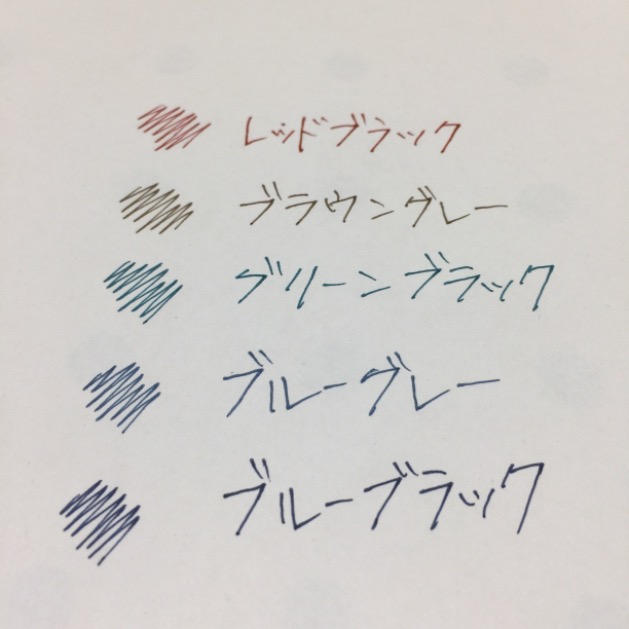 レッドブラック
ブラウングレー
グリーンブラック
ブルーグレー
ブルーブラック